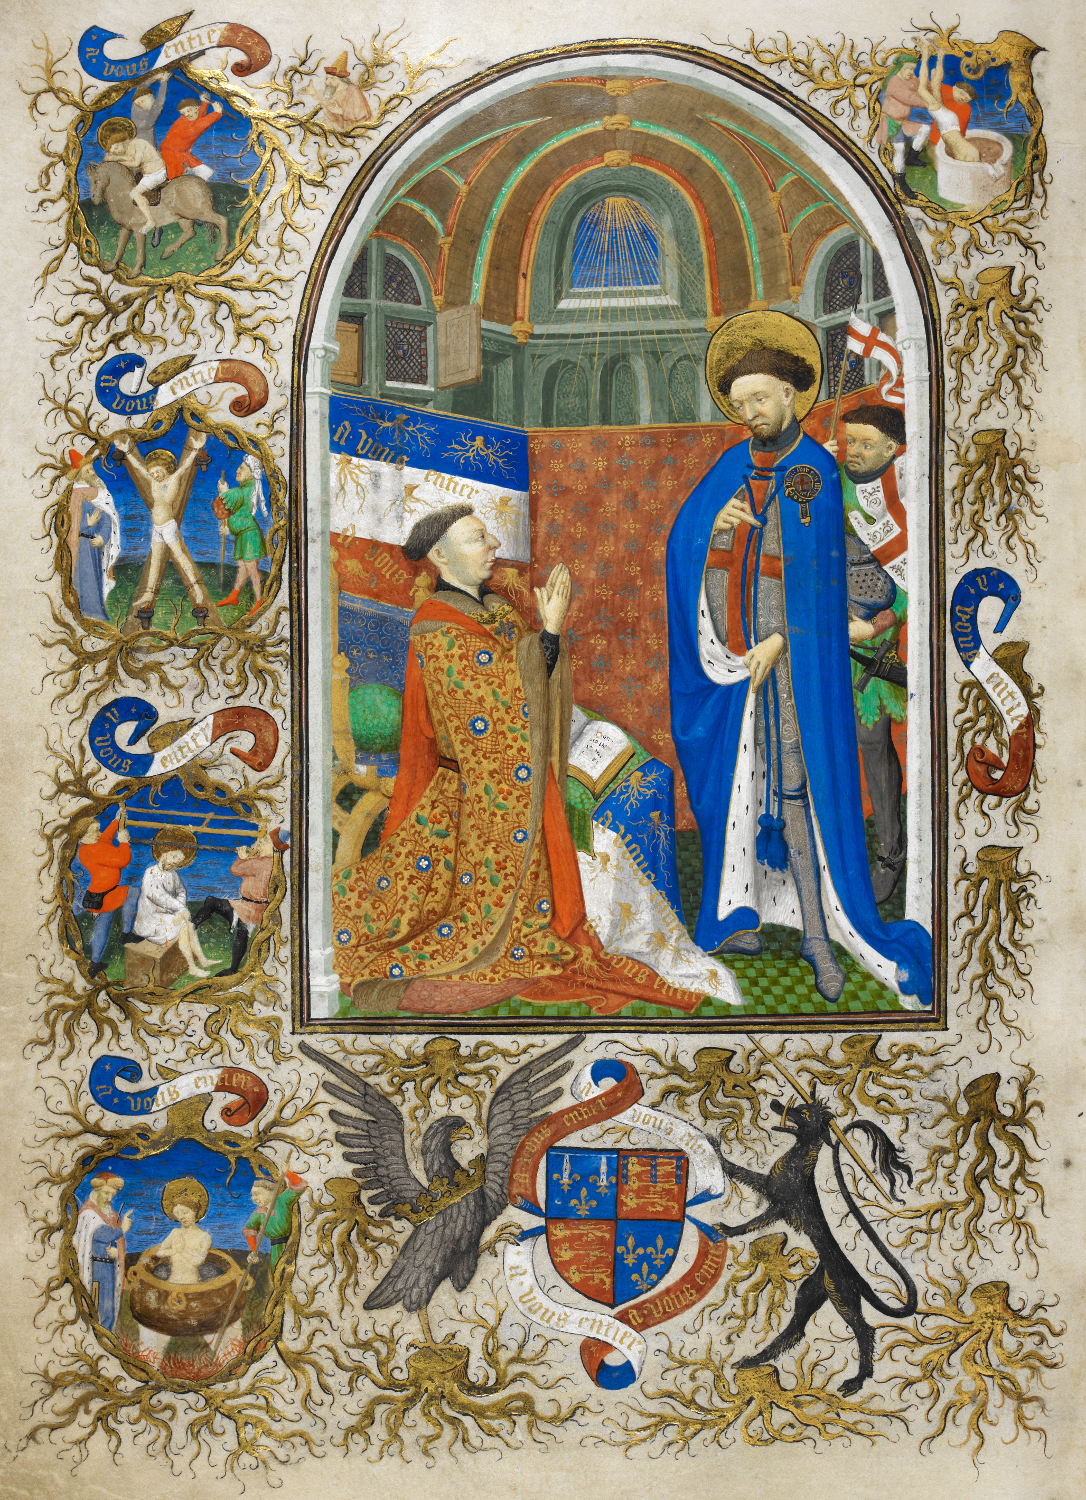 a vous entier
a vous entier
a vous entier
a vous entier
A vous
entier
a vous
A vous entier
vous entier
a vous entier
a vous entier
a vous entier
a vous entier
a vous entier